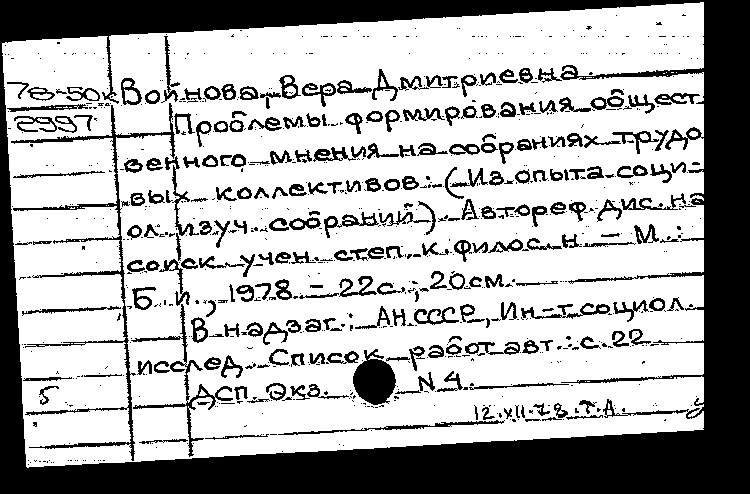 78-50к Войнова, Вера Дмитриевна.
2997 Проблемы формирования общест
венного мнения на собраниях трудо
вых коллективов: (Из опыта соци-
ол. изуч. собраний). Автореф. дис. на
соиск. учен. степ. к. филос. н. - М.:
Б. и., 1978. - 22с.; 20см.
В надзаг.: АН СССР, Ин-т социол.
исслед. Список работ авт.: с. 22.
5 ДСП. Экз. N 4.
12.XII.78. Т.А.